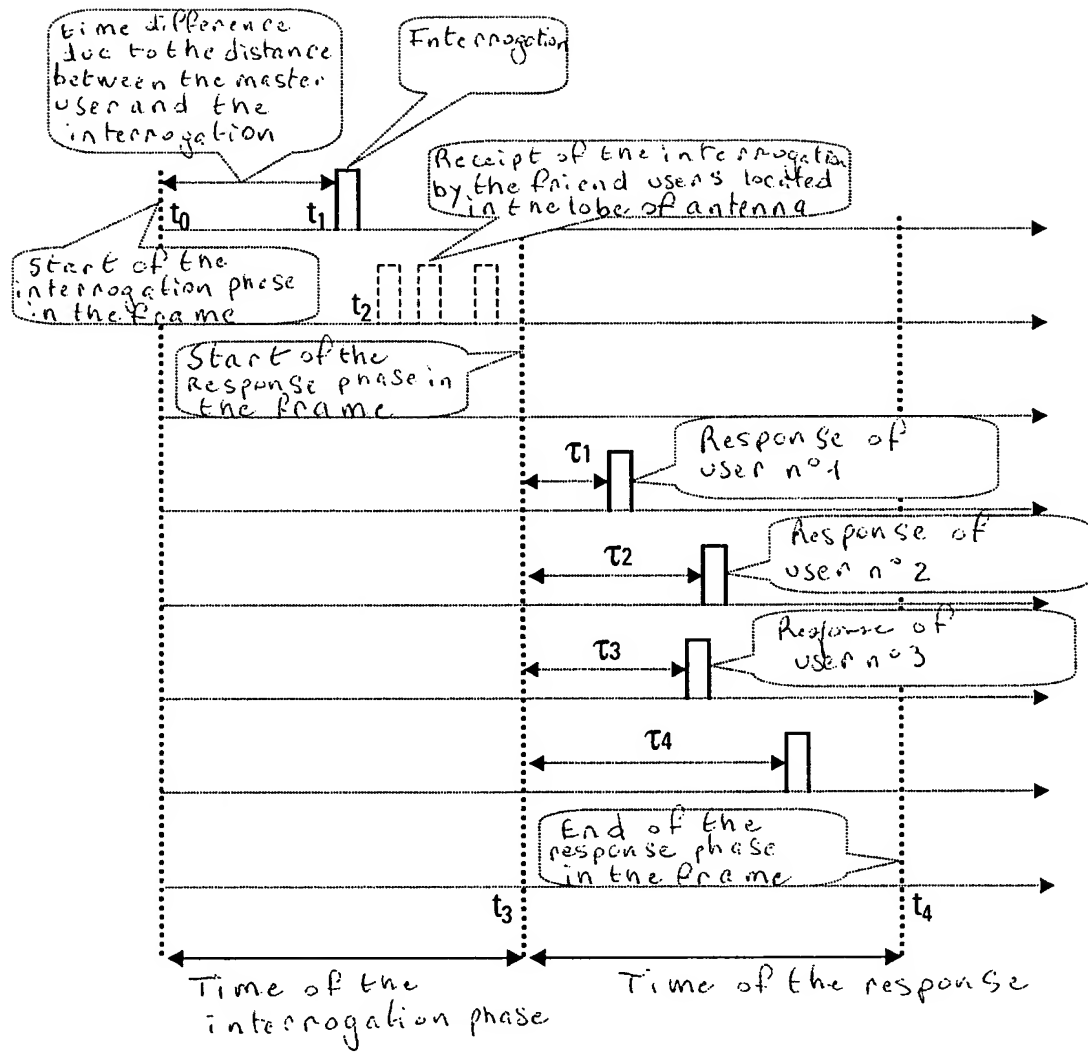 time difference
due to the distance
between the master
user and the
interrogation
Interrogation
Receipt of the interrogation
by the friend users located
in the lobe of antenna
t0
t1
Start of the
interrogation phase
in the frame
t2
Start of the
Response phase in
the frame
τ1
Response of
user n°1
τ2
Response of
user n°2
τ3
Response of
user n°3
τ4
End of the
response phase
in the frame
t3
t4
Time of the
interrogation phase
Time of the response